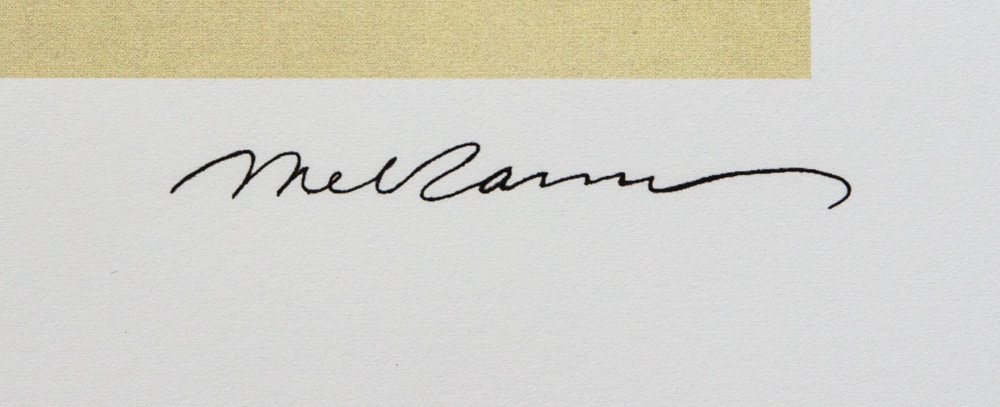 Mel Ramos